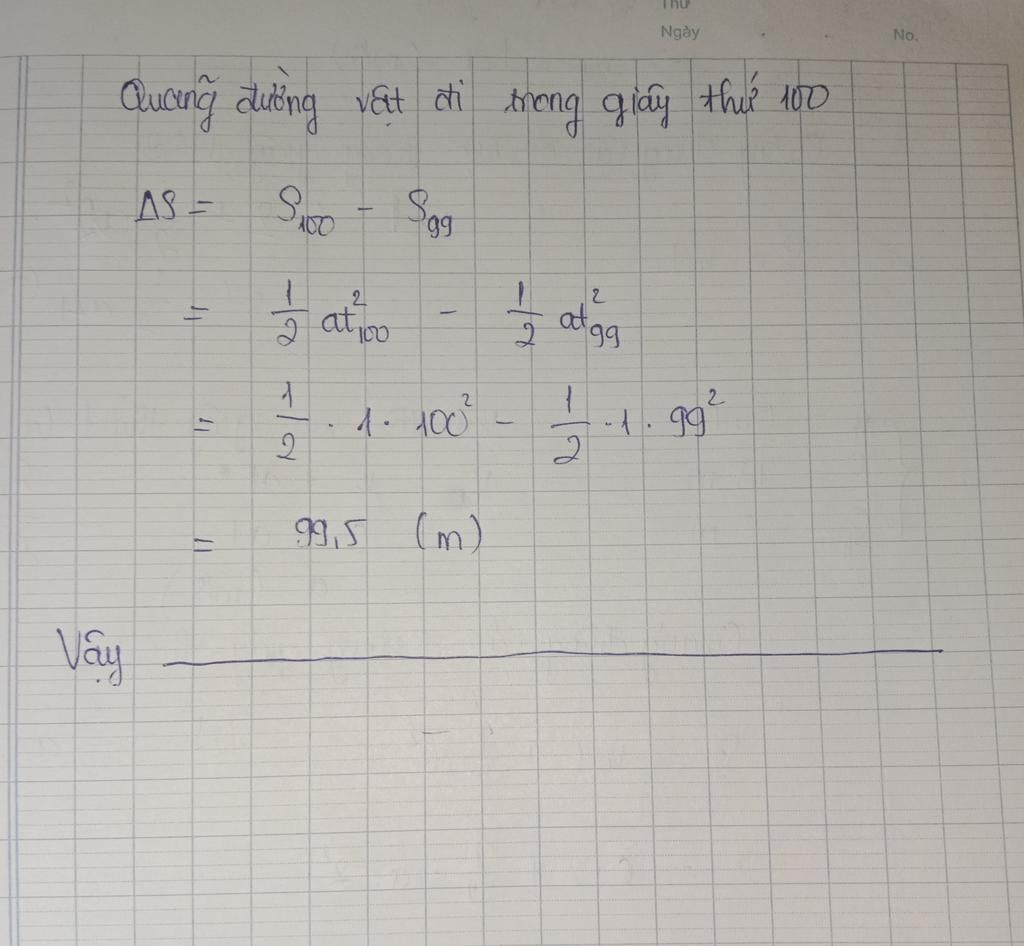 Thứ
Ngày . . No.
Quãng đường vật đi trong giây thứ 100
ΔS = S₁₀₀ - S₉₉
= 1/2 at²₁₀₀ - 1/2 at²₉₉
= 1/2 . 1 . 100² - 1/2 . 1 . 99²
= 99,5 (m)
Vậy